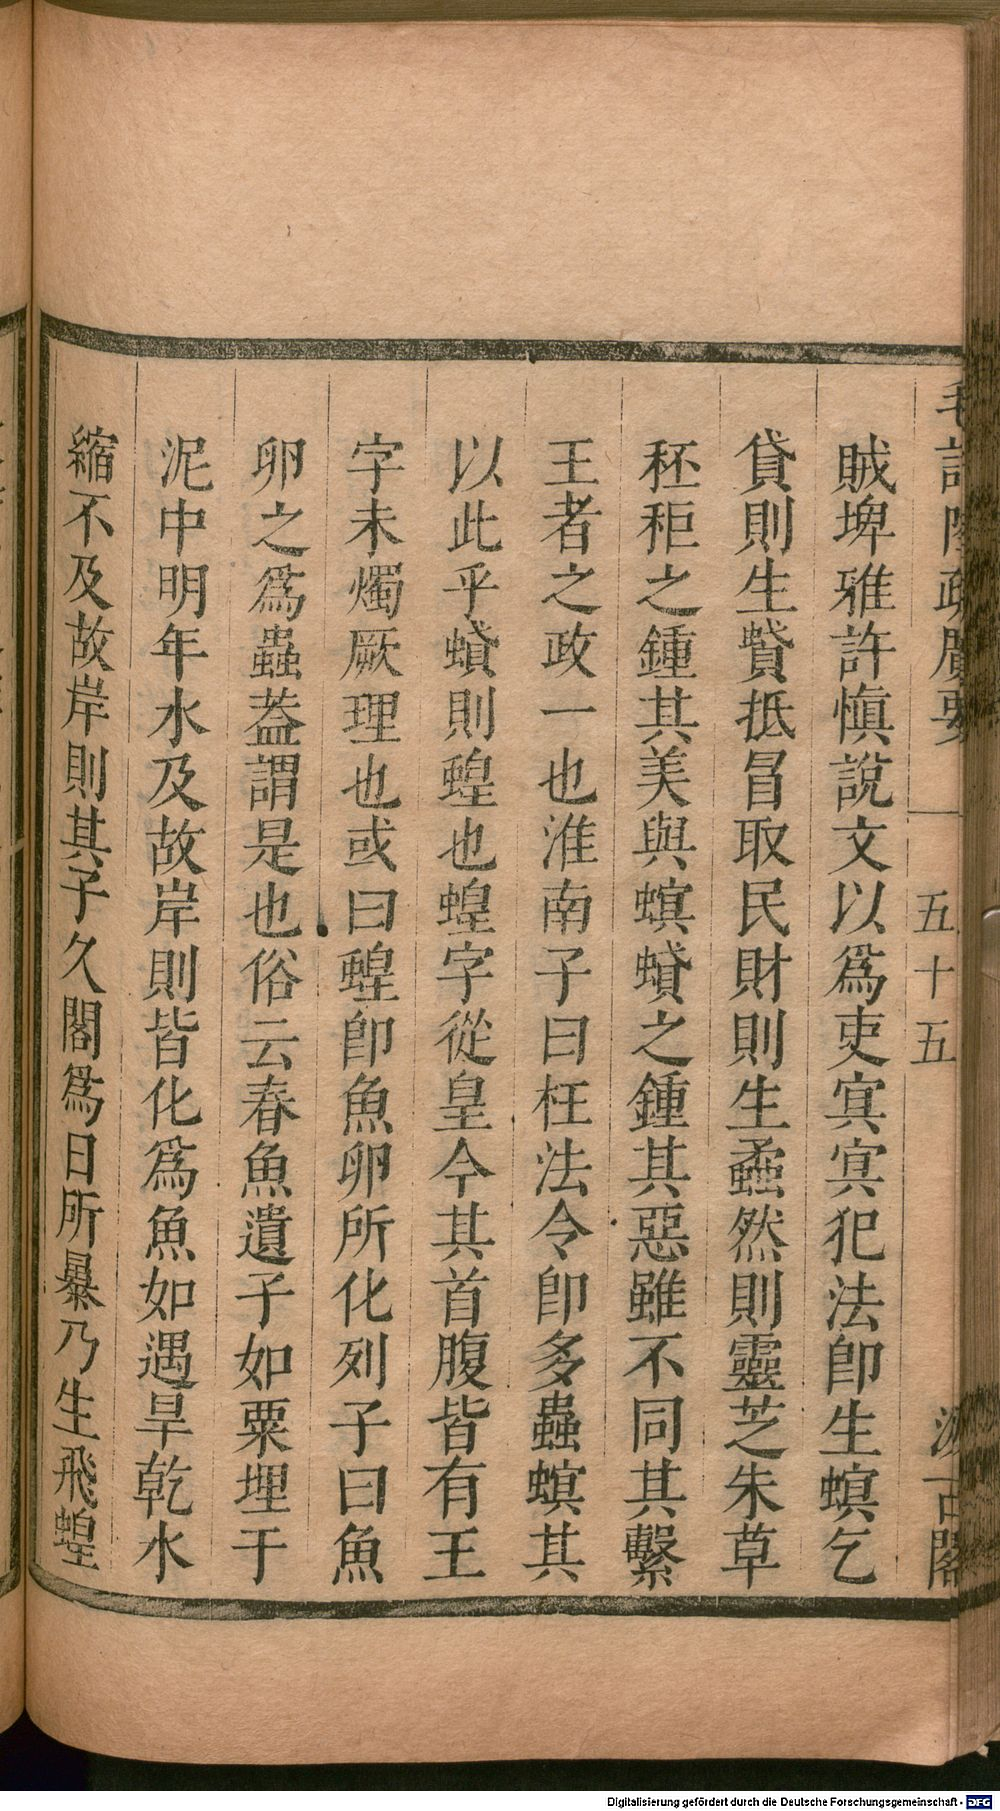 毛詩陸疏廣要 五十五 汲古閣
賊埤雅許慎說文以爲吏㝠㝠犯法卽生螟乞
貸則生蟘抵冒取民財則生蟊然則靈芝朱草
秠秬之鍾其美與螟蟘之鍾其惡雖不同其繫
王者之政一也淮南子曰枉法令卽多蟲螟其
以此乎蟘則蝗也蝗字從皇今其首腹皆有王
字未燭厥理也或曰蝗卽魚卵所化列子曰魚
卵之爲蟲葢謂是也俗云春魚遺子如粟埋于
泥中明年水及故岸則皆化爲魚如遇旱乾水
縮不及故岸則其子久閣爲日所暴乃生飛蝗
Digitalisierung gefördert durch die Deutsche Forschungsgemeinschaft - DFG